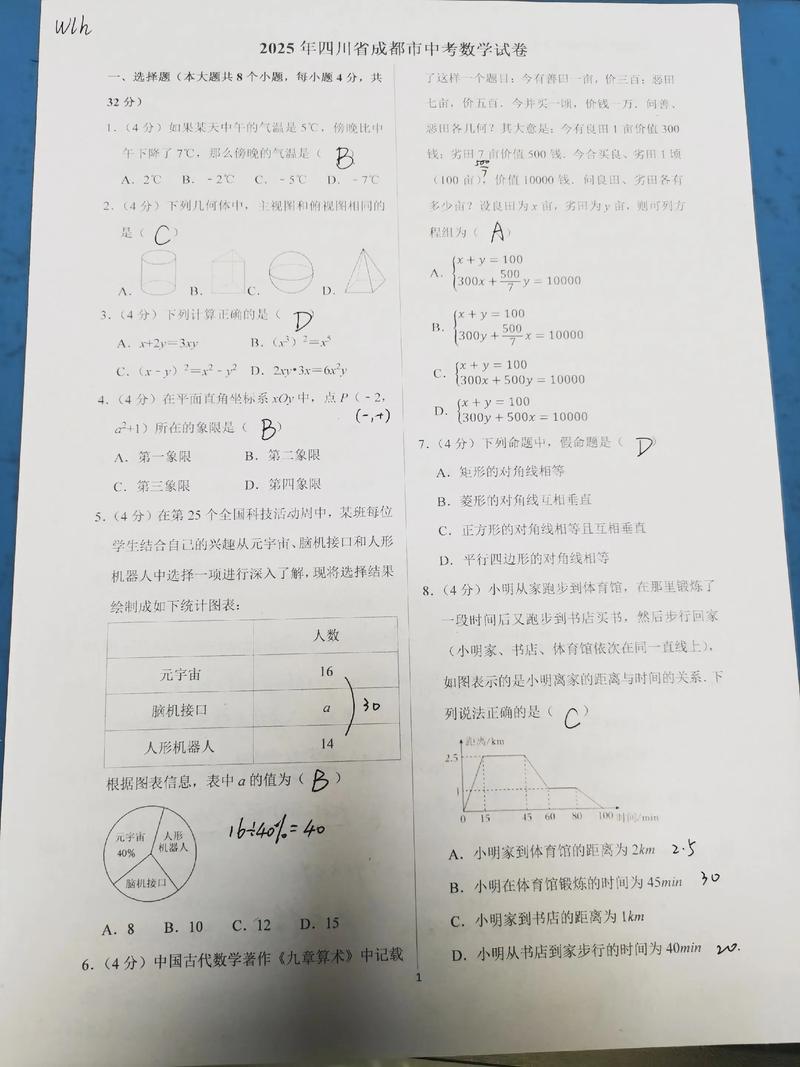 Wlh
2025 年四川省成都市中考数学试卷
一、选择题（本大题共 8 个小题，每小题 4 分，共
32 分）
1．（4 分）如果某天中午的气温是 5℃，傍晚比中
午下降了 7℃，那么傍晚的气温是（ B ）
A．2℃ B．﹣2℃ C．﹣5℃ D．﹣7℃
2．（4 分）下列几何体中，主视图和俯视图相同的
是（ C ）
A． B． C． D．
3．（4 分）下列计算正确的是（ D ）
A．x+2y＝3xy B．（x³）²＝x⁵
C．（x﹣y）²＝x²﹣y² D．2xy•3x＝6x²y
4．（4 分）在平面直角坐标系 xOy 中，点 P（﹣2，
(-,+)
a²+1）所在的象限是（ B ）
A．第一象限 B．第二象限
C．第三象限 D．第四象限
5．（4 分）在第 25 个全国科技活动周中，某班每位
学生结合自己的兴趣从元宇宙、脑机接口和人形
机器人中选择一项进行深入了解，现将选择结果
绘制成如下统计图表：
人数
元宇宙 16
脑机接口 a 30
人形机器人 14
根据图表信息，表中 a 的值为（ B ）
元宇宙
40%
人形
机器人
脑机接口
16÷40%=40
A．8 B．10 C．12 D．15
6．（4 分）中国古代数学著作《九章算术》中记载
了这样一个题目：今有善田一亩，价三百；恶田
七亩，价五百．今并买一顷，价钱一万．问善、
恶田各几何？其大意是：今有良田 1 亩价值 300
钱；劣田 7 亩价值 500 钱．今合买良、劣田 1 顷
500/7
（100 亩），价值 10000 钱．问良田、劣田各有
多少亩？设良田为 x 亩，劣田为 y 亩，则可列方
程组为（ A ）
A．{x + y = 100
300x + 500/7 y = 10000
B．{x + y = 100
300y + 500/7 x = 10000
C．{x + y = 100
300x + 500y = 10000
D．{x + y = 100
300y + 500x = 10000
7．（4 分）下列命题中，假命题是（ D ）
A．矩形的对角线相等
B．菱形的对角线互相垂直
C．正方形的对角线相等且互相垂直
D．平行四边形的对角线相等
8．（4 分）小明从家跑步到体育馆，在那里锻炼了
一段时间后又跑步到书店买书，然后步行回家
（小明家、书店、体育馆依次在同一直线上），
如图表示的是小明离家的距离与时间的关系．下
列说法正确的是（ C ）
距离/km
2.5
1
0 15 45 60 80 100 时间/min
A．小明家到体育馆的距离为 2km 2.5
B．小明在体育馆锻炼的时间为 45min 30
C．小明家到书店的距离为 1km
D．小明从书店到家步行的时间为 40min 20.
1